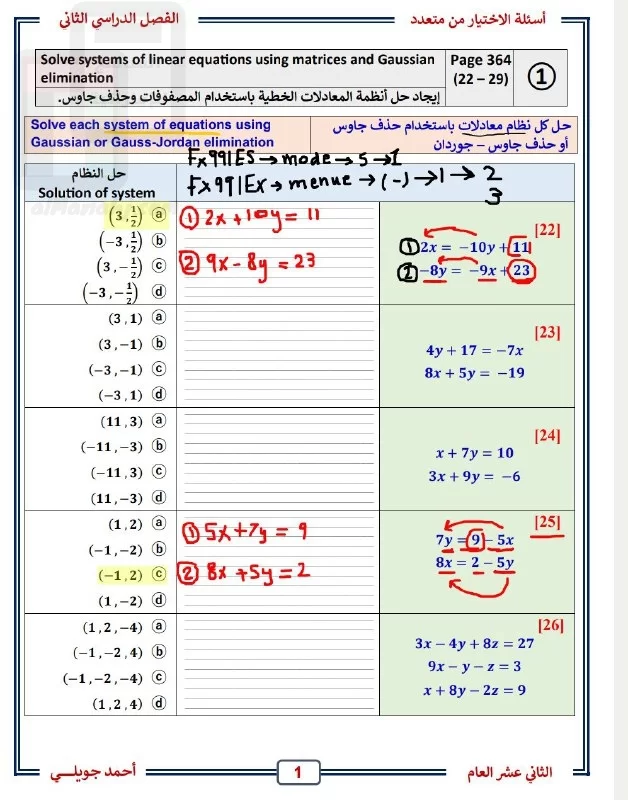 أسئلة الاختيار من متعدد
الفصل الدراسي الثاني
Solve systems of linear equations using matrices and Gaussian elimination
Page 364
(22 – 29)
①
إيجاد حل أنظمة المعادلات الخطية باستخدام المصفوفات وحذف جاوس.
Solve each system of equations using
Gaussian or Gauss-Jordan elimination
حل كل نظام معادلات باستخدام حذف جاوس
أو حذف جاوس – جوردان
Fx991ES → mode → 5 → 1
Fx991Ex → menue → (-) → 1 → 2
3
حل النظام
Solution of system
(3, 1/2) ⓐ
(−3, 1/2) ⓑ
(3, −1/2) ⓒ
(−3, −1/2) ⓓ
① 2x + 10y = 11
② 9x - 8y = 23
[22]
① 2x = −10y + 11
② −8y = −9x + 23
(3, 1) ⓐ
(3, −1) ⓑ
(−3, −1) ⓒ
(−3, 1) ⓓ
[23]
4y + 17 = −7x
8x + 5y = −19
(11, 3) ⓐ
(−11, −3) ⓑ
(−11, 3) ⓒ
(11, −3) ⓓ
[24]
x + 7y = 10
3x + 9y = −6
(1, 2) ⓐ
(−1, −2) ⓑ
(−1, 2) ⓒ
(1, −2) ⓓ
① 5x + 7y = 9
② 8x + 5y = 2
[25]
7y = 9 − 5x
8x = 2 − 5y
(1, 2, −4) ⓐ
(−1, −2, 4) ⓑ
(−1, −2, −4) ⓒ
(1, 2, 4) ⓓ
[26]
3x − 4y + 8z = 27
9x − y − z = 3
x + 8y − 2z = 9
الثاني عشر العام
1
أحمد جويلـــي